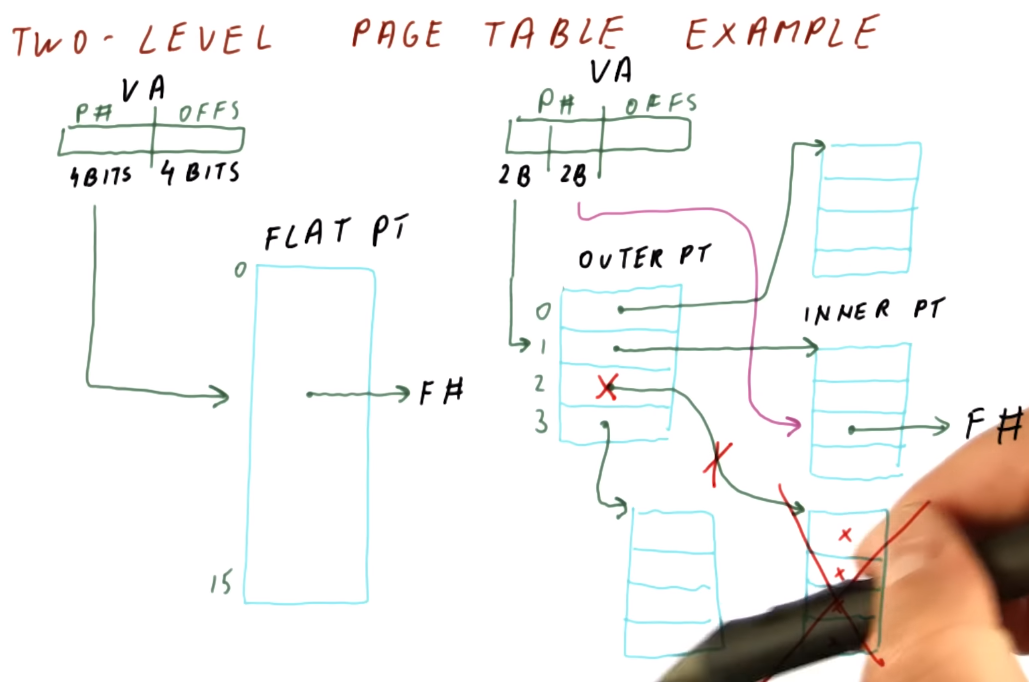 TWO-LEVEL PAGE TABLE EXAMPLE
VA
P# OFFS
4BITS 4 BITS
FLAT PT
0
15
F#
VA
P# OFFS
2B 2B
OUTER PT
0
1
2
3
INNER PT
F#